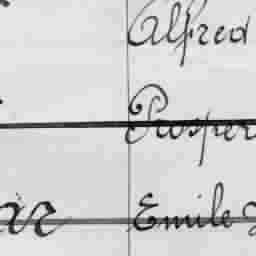 Alfred
Prosper
Emile